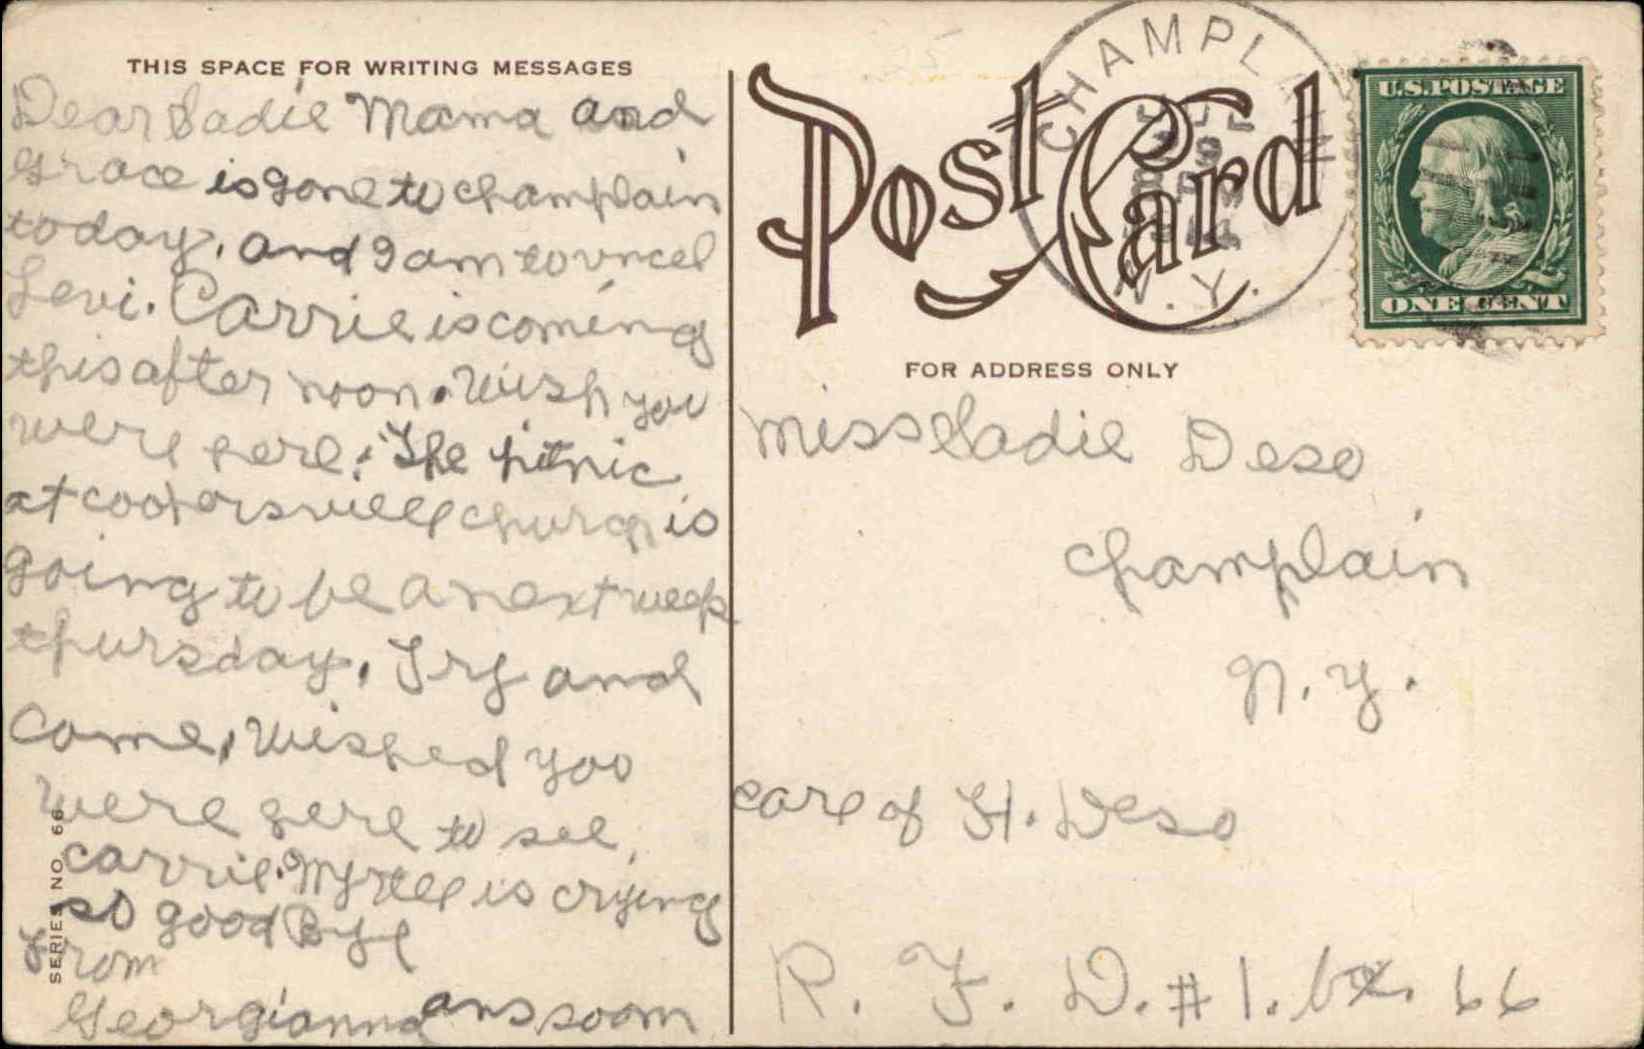 THIS SPACE FOR WRITING MESSAGES
Dear Sadie Mama and
Grace is gone to champlain
today, and I am to uncel
Levi. Carrie is coming
this after noon. Wish you
were here. The pitnic
at coopersville church is
going to be a next week
thursday. Try and
come, wished you
were here to see
carrie. Myrtle is crying
so good Bye
From
Georgianna ans soom
SERIES NO. 66
Post Card
CHAMPLAIN
N. Y.
U.S. POSTAGE
ONE CENT
FOR ADDRESS ONLY
Miss Sadie Deso
champlain
N. Y.
care of H. Deso
R. F. D. # 1. bx. 66